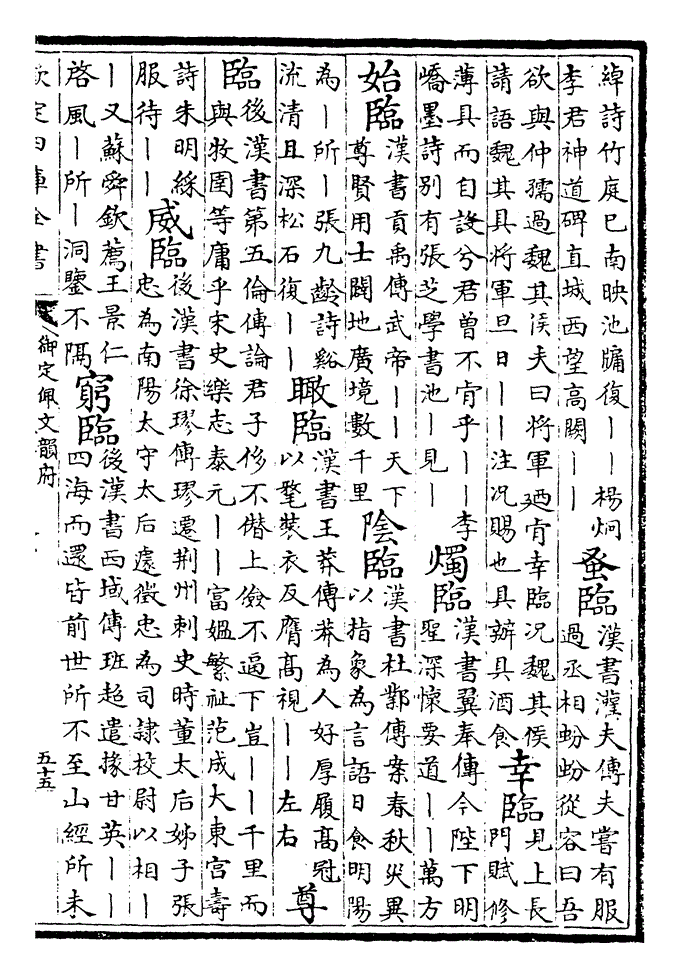 綽詩竹庭巳南映池牖復——楊炯
李君神道碑直城西望高闕——
蚤臨
漢書灌夫傳夫嘗有服
過丞相蚡蚡從容曰吾
欲與仲孺過魏其侯夫曰將軍廼肯幸臨况魏其侯
請語魏其具將軍旦日——注况賜也具辦具酒食
幸臨
見上長
門賦修
薄具而自設兮君曾不肯乎——李
嶠墨詩別有張芝學書池—見—
燭臨
漢書翼奉傳今陛下明
聖深懷要道——萬方
始臨
漢書貢禹傳武帝——天下
尊賢用士闢地廣境數千里
陰臨
漢書杜鄴傳案春秋災異
以指象為言語日食明陽
為—所—張九齡詩谿
流清且深松石復——
瞰臨
漢書王莽傳莽為人好厚履高冠
以氂裝衣反膺高視——左右
尊
臨
後漢書第五倫傳論君子侈不僭上儉不逼下豈——千里而
與牧圉等庸乎宋史樂志泰元——富媼繁祉范成大東宮壽
詩朱明綵
服待——
威臨
後漢書徐璆傳璆遷荆州刺史時董太后姊子張
忠為南陽太守太后遽徵忠為司隷校尉以相—
—又蘇舜欽薦王景仁
啓風—所—洞鑒不隔
窮臨
後漢書西域傳班超遣掾甘英——
四海而還皆前世所不至山經所未
欽定四庫全書
御定佩文韻府
五十五